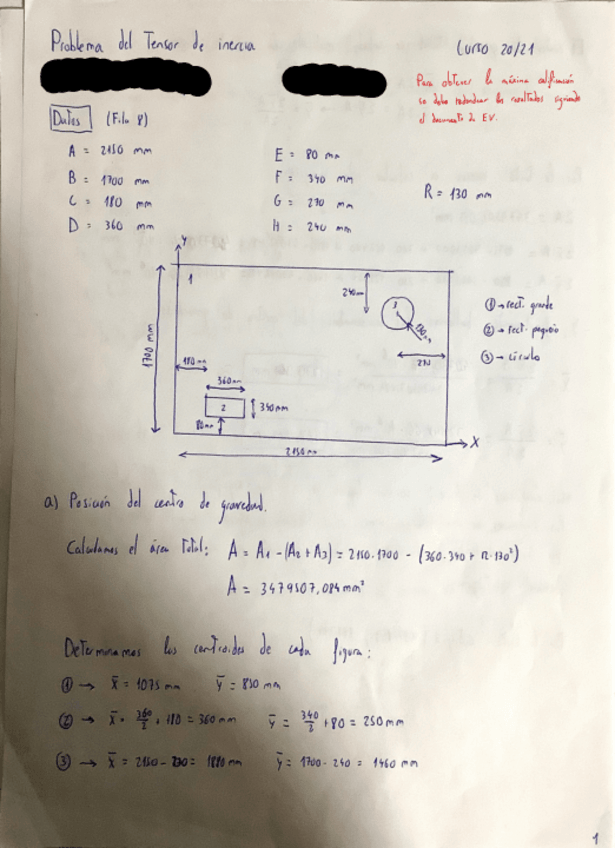 Problema del Tensor de inercia
Curso 20/21
Para obtener la máxima calificación
se debe redondear los resultados siguiendo
el documento de EV.
Datos (Fila 8)
A = 2150 mm
B = 1700 mm
C = 180 mm
D = 360 mm
E = 80 mm
F = 340 mm
G = 270 mm
H = 240 mm
R = 130 mm
Y
1
240mm
3
130mm
270
1700 mm
180mm
360mm
2
340mm
80mm
X
2150mm
① → rect. grande
② → rect. pequeño
③ → círculo
a) Posición del centro de gravedad.
Calculamos el área Total: A = A1 - (A2 + A3) = 2150·1700 - (360·340 + π·130²)
A = 3479507,084 mm²
Determinamos los centroides de cada figura:
① → x̄ = 1075 mm ȳ = 850 mm
② → x̄ = 360/2 + 180 = 360 mm ȳ = 340/2 + 80 = 250 mm
③ → x̄ = 2150 - 270 = 1880 mm ȳ = 1700 - 240 = 1460 mm
1